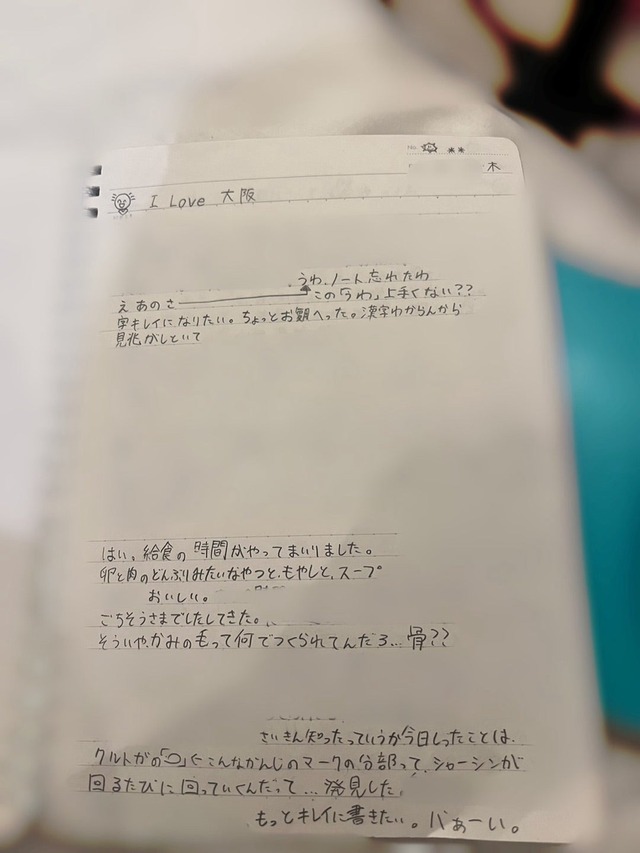 No.
木
I Love 大阪
うわ、ノート忘れたわ
え あのさ この「うわ」上手くない??
字キレイになりたい。ちょっとお腹へった。漢字わからんから
見兆がしといて
はい、給食の時間がやってまいりました。
卵と肉のどんぶりみたいなやつと、もやしと、スープ
おいしい。
ごちそうさまでしたしてきた。
そういや、かみの毛って何でつくられてんだろ…骨??
さいきん知ったっていうか今日しったことは、
クルトガの「 」←こんなかんじのマークの分部って、シャーシンが
回るたびに回っていくんだって…発見した。
もっとキレイに書きたい。バぁーい。